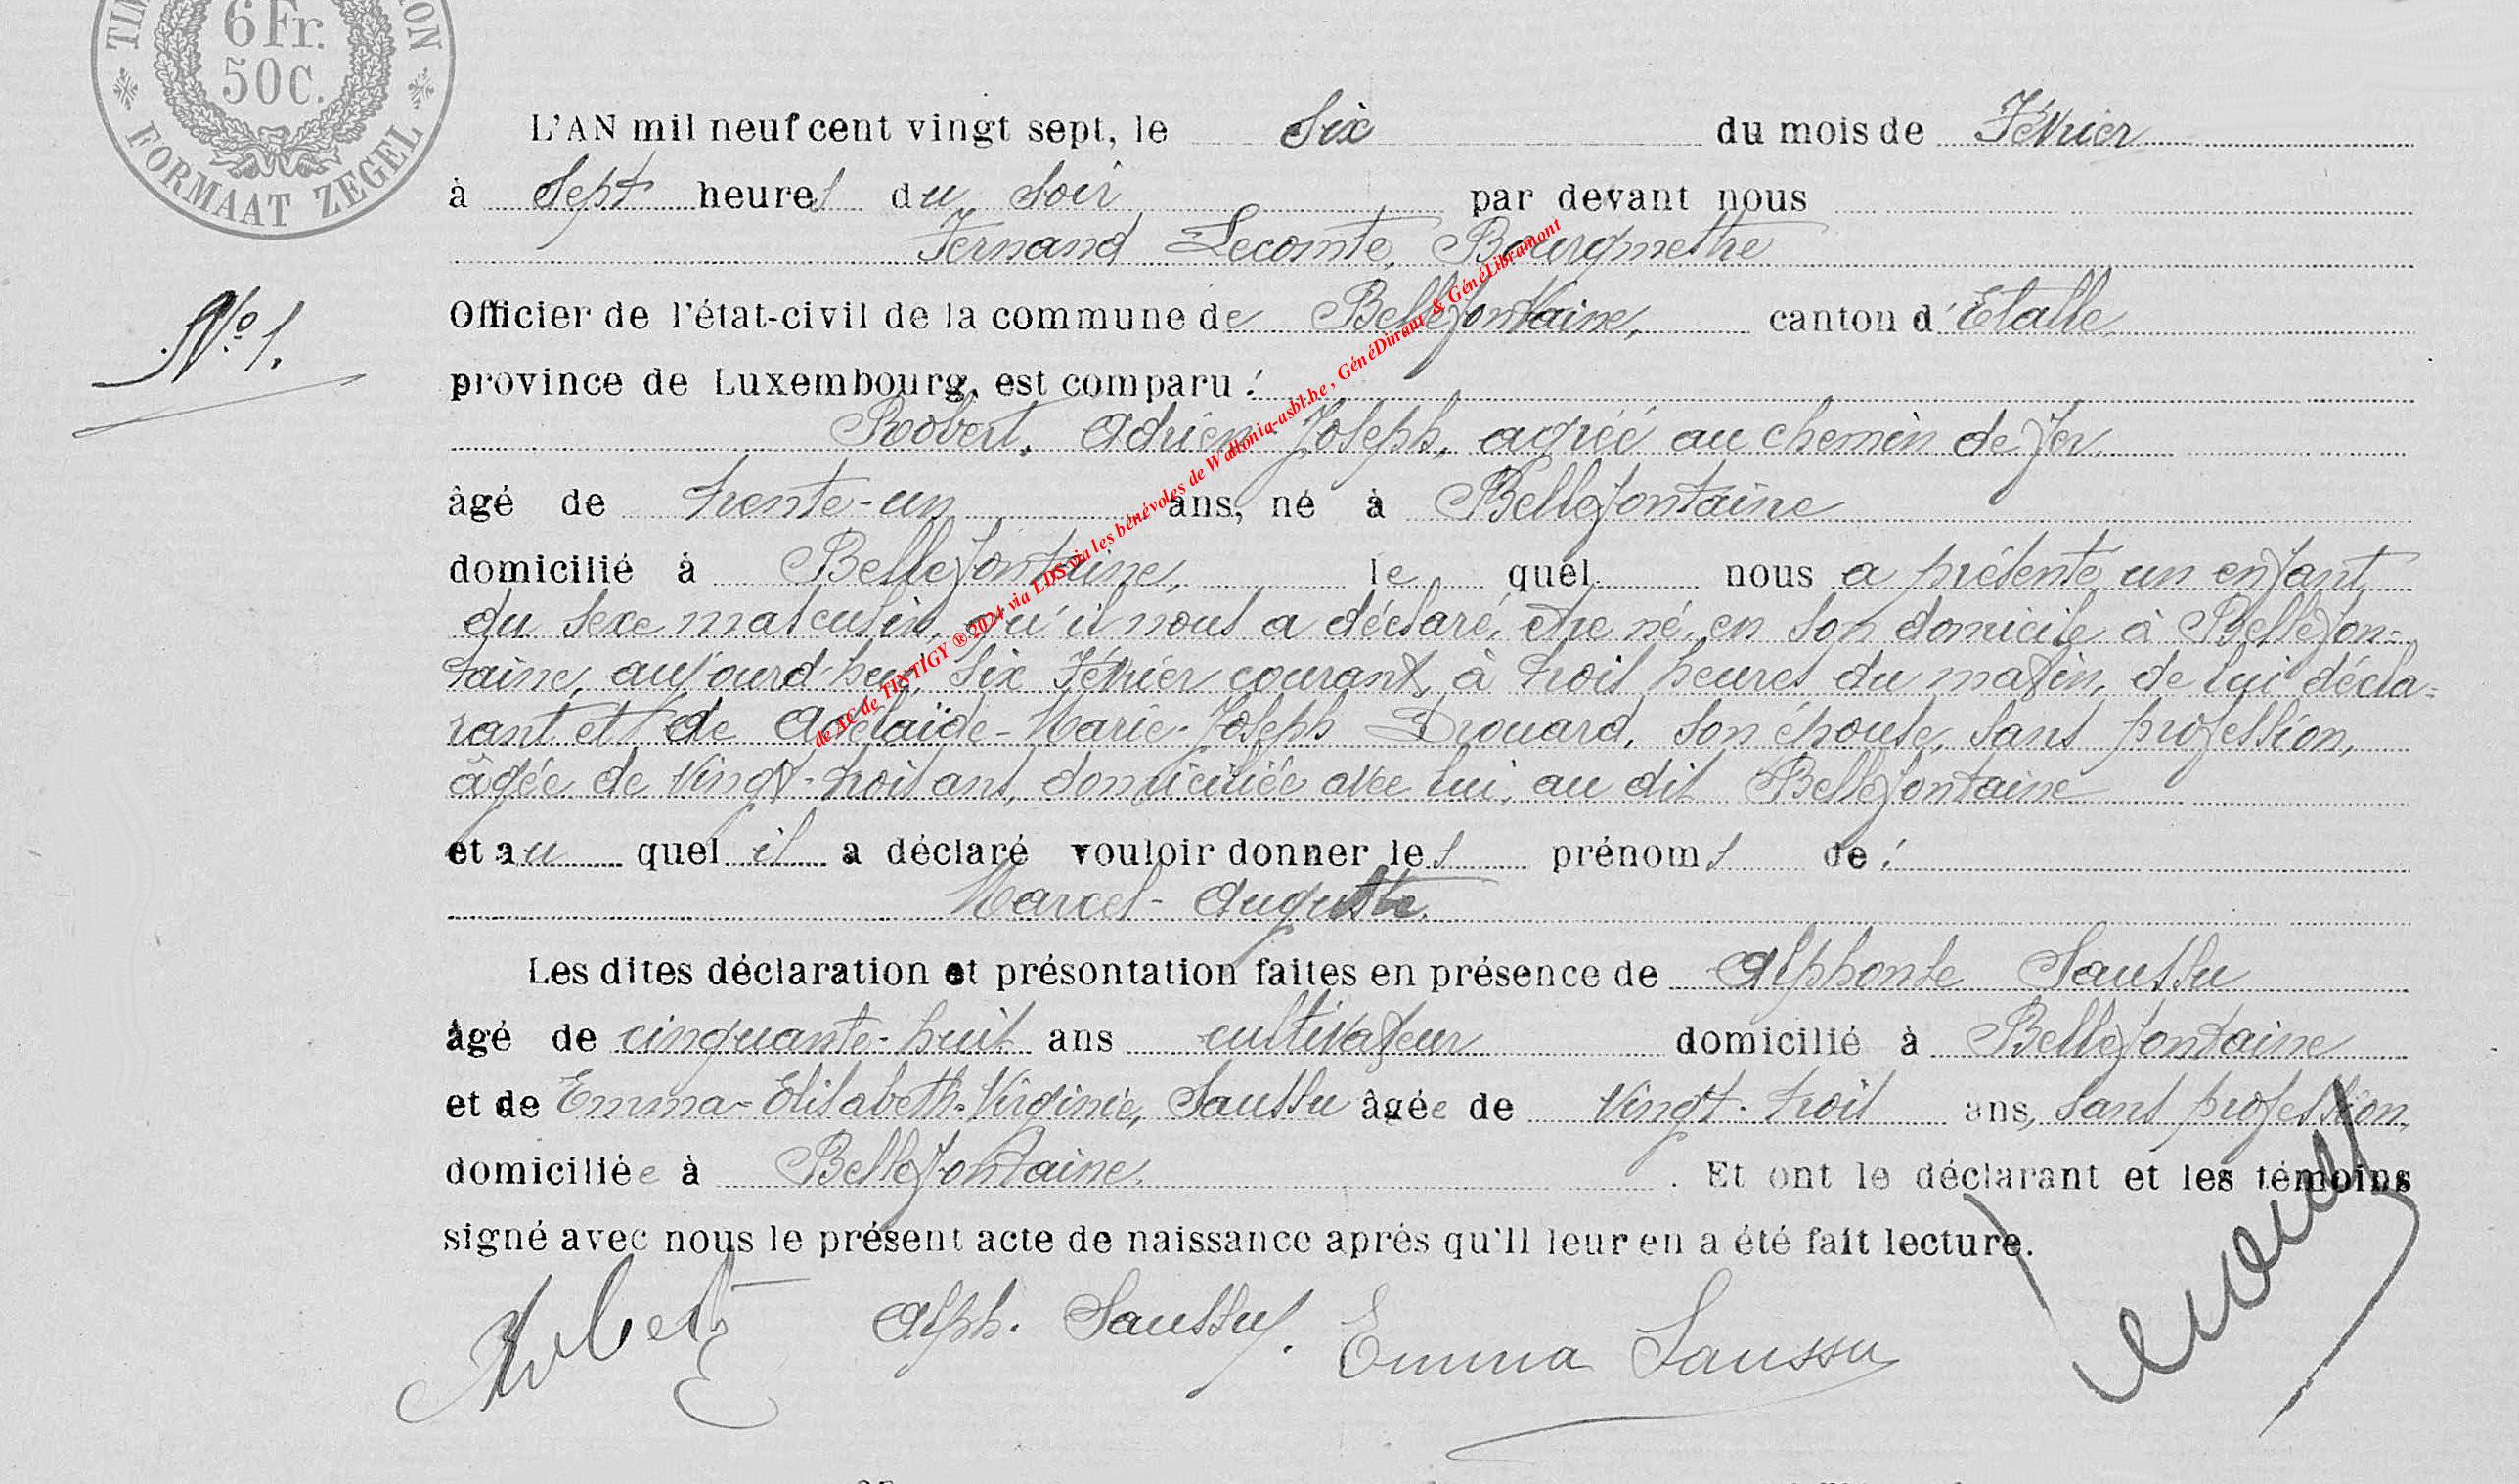 6 Fr.
50 C.
FORMAAT ZEGEL
L'AN mil neuf cent vingt sept, le Six du mois de Février
à Sept heures du Soir par devant nous
Fernand Lecomte, Bourgmestre
N° 1.
Officier de l'état-civil de la commune de Bellefontaine, canton d'Etalle
province de Luxembourg, est comparu :
Robert, Adrien-Joseph, agréé au chemin de fer,
âgé de trente-un ans, né à Bellefontaine
domicilié à Bellefontaine, le quel nous a présenté un enfant
du sexe masculin, qu'il nous a déclaré, être né, en son domicile à Bellefon-
taine, aujourd'hui, Six Février courant, à trois heures du matin, de lui décla-
rant et de Adélaïde-Marie-Joseph Drouard, son épouse, sans profession,
âgée de Vingt-trois ans, domiciliée avec lui, au dit Bellefontaine
et au quel il a déclaré vouloir donner les prénoms de :
Marcel-Auguste.
Les dites déclaration et présontation faites en présence de Alphonse Saussu
âgé de cinquante-huit ans cultivateur domicilié à Bellefontaine
et de Emma-Elisabeth-Virginie, Saussu âgée de Vingt-trois ans, sans profession,
domiciliée à Bellefontaine. Et ont le déclarant et les témoins
signé avec nous le présent acte de naissance après qu'il leur en a été fait lecture.
Robert Alph. Saussu. Emma Saussu
de AC de TINTIGY ® 2024 via LDS via les bénévoles de Wallonia-asbl.be, GénéDinant & GénéLibramont